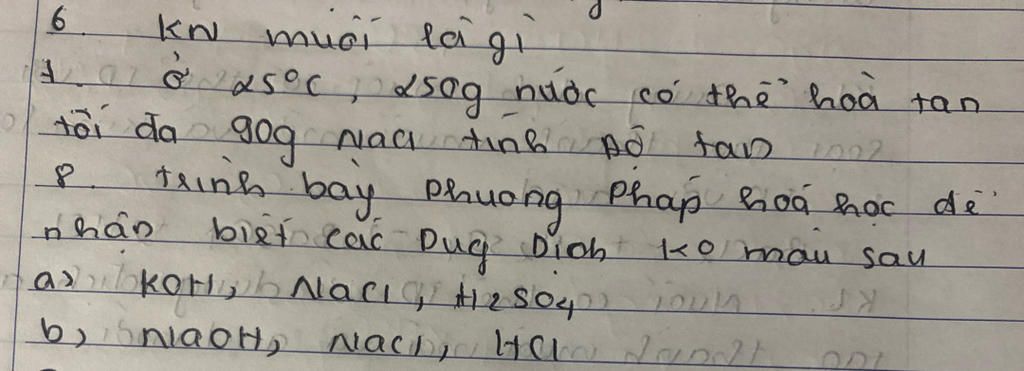 6. KN muối là gì
7. ở 25°C, 250g nước có thể hoà tan
tối đa 90g NaCl tính Độ tan
8. trình bày phương pháp hoá học để
nhận biết các Dug Dịch ko màu sau
a) KOH, NaCl, H2SO4
b, NaOH, NaCl, HCl